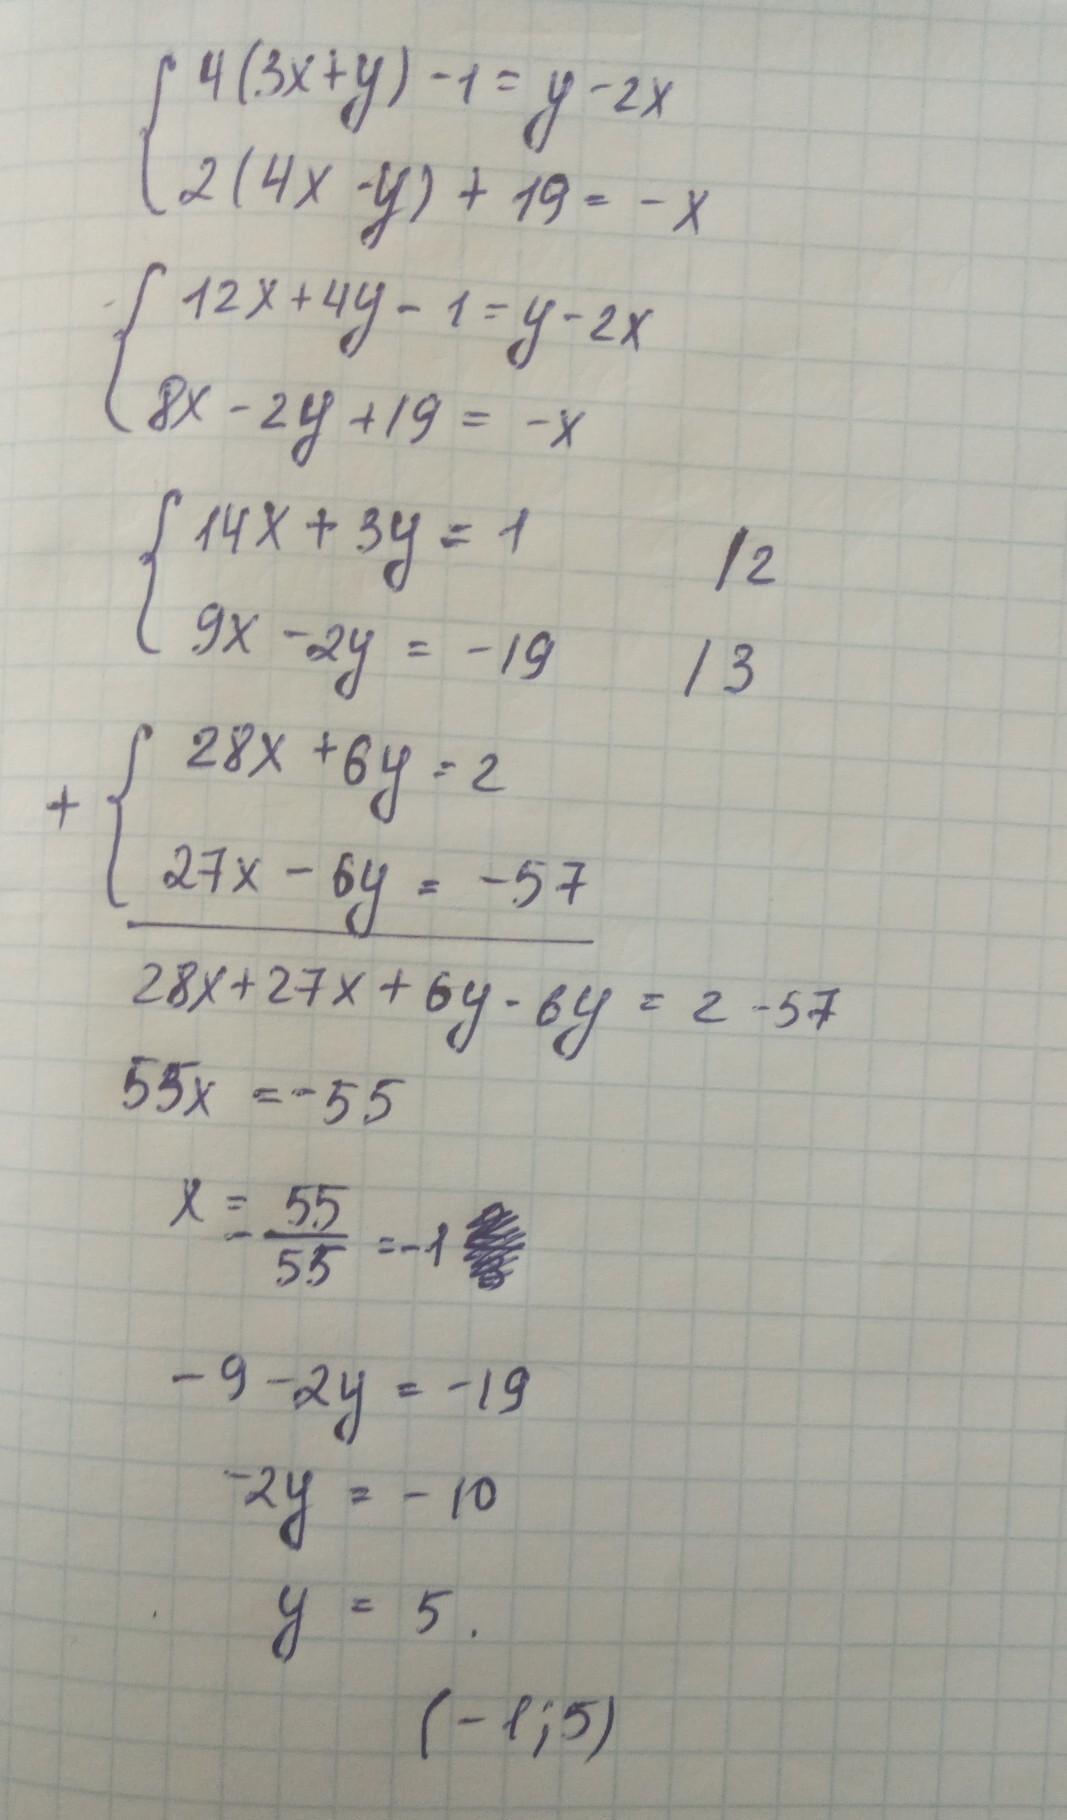 4(3x+y) -1 = y -2x
2(4x -y) + 19 = -x
12x+4y - 1 = y -2x
8x -2y +19 = -x
14x + 3y = 1 /2
9x -2y = -19 /3
28x +6y = 2
+
27x - 6y = -57
28x+27x + 6y - 6y = 2 -57
55x = -55
x = - 55/55 = -1
-9 -2y = -19
-2y = -10
y = 5.
(-1;5)